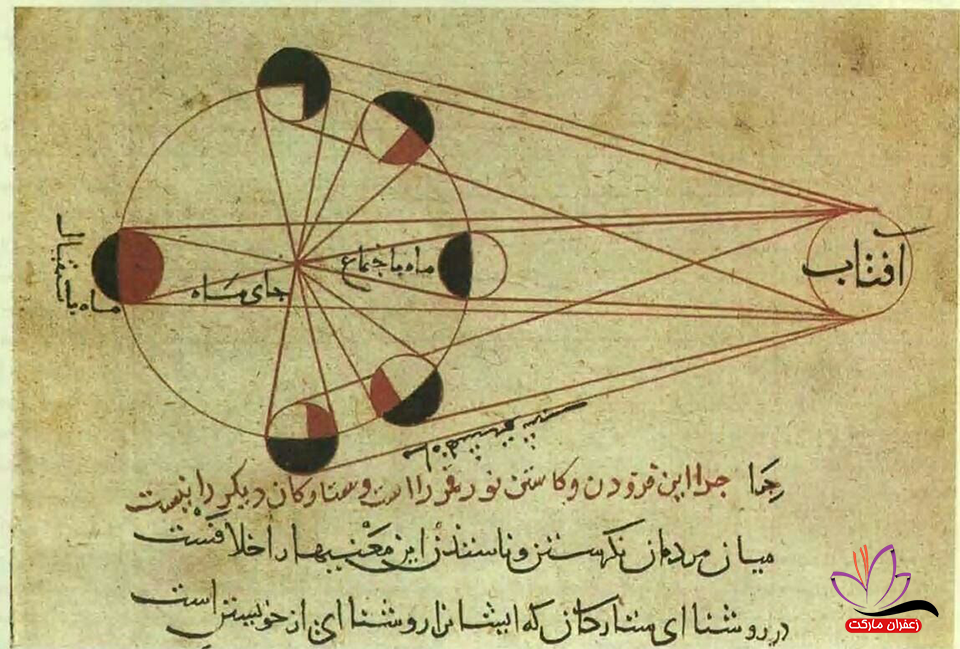 افتاب
ماه باجتماع
جای ماه
ماه باستقبال
چرا این فزودن و کاستن نور قمر را است و ستارکان دیکر را نیست
میان مردمان نکرستن و نا این معنیها را خلافست
در روشنا ای ستارکان که ایشانرا روشنا ای از خویشتن است
زعفران مارکت